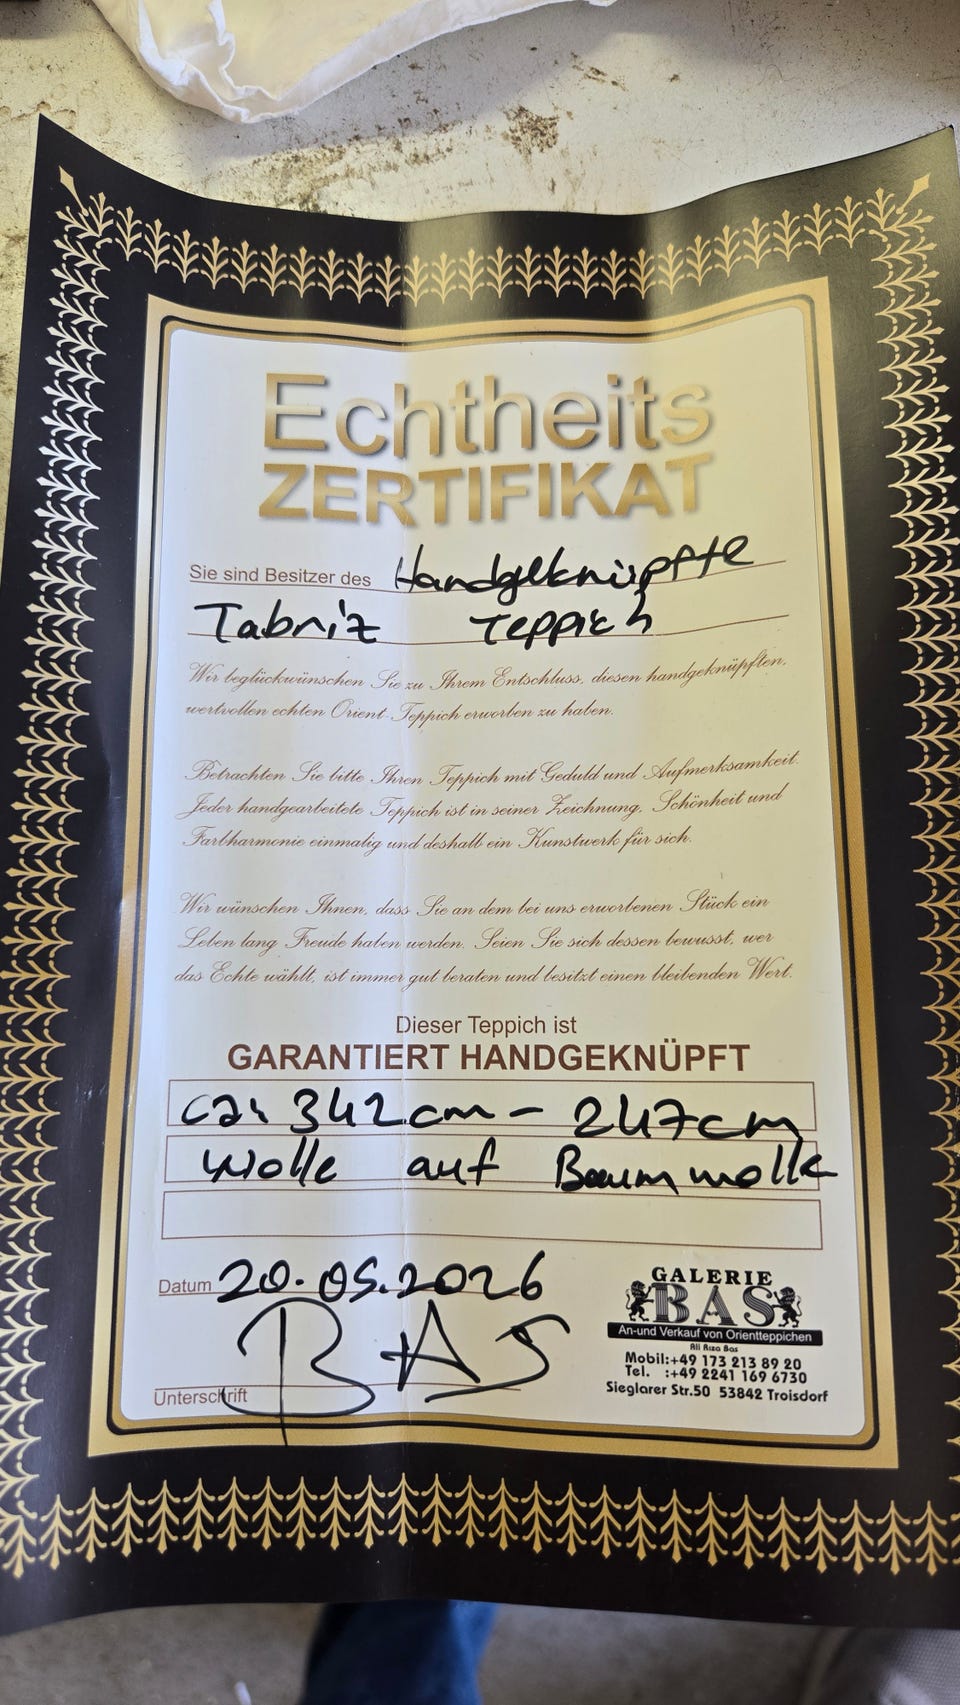 Echtheits
ZERTIFIKAT
Sie sind Besitzer des Handgeknüpfte
Tabriz Teppich
Wir beglückwünschen Sie zu Ihrem Entschluss, diesen handgeknüpften,
wertvollen echten Orient-Teppich erworben zu haben.
Betrachten Sie bitte Ihren Teppich mit Geduld und Aufmerksamkeit.
Jeder handgearbeitete Teppich ist in seiner Zeichnung, Schönheit und
Farbharmonie einmalig und deshalb ein Kunstwerk für sich.
Wir wünschen Ihnen, dass Sie an dem bei uns erworbenen Stück ein
Leben lang Freude haben werden. Seien Sie sich dessen bewusst, wer
das Echte wählt, ist immer gut beraten und besitzt einen bleibenden Wert.
Dieser Teppich ist
GARANTIERT HANDGEKNÜPFT
ca. 342cm - 247cm
Wolle auf Baumwolle
Datum 20.05.2026
Unterschrift BAS
GALERIE
BAS
An-und Verkauf von Orientteppichen
Ali Riza Bas
Mobil:+49 173 213 89 20
Tel. :+49 2241 169 6730
Sieglarer Str.50 53842 Troisdorf